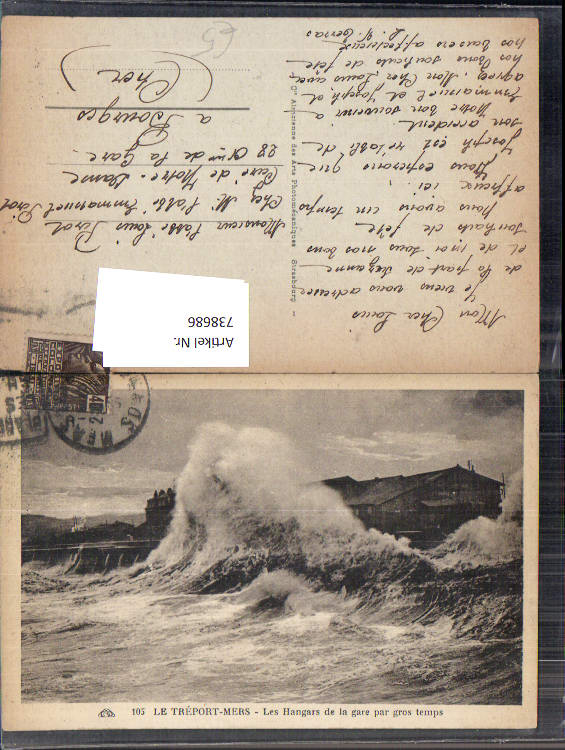 Mon Cher Louis
Je viens vous adresser
de la part de Suzanne
et de moi tous nos bons
souhaits de fête
Nous avons un temps
affreux ici.
Nous espérons que
Joseph est rétabli de
son accident
Notre bon souvenir à
Emmanuel et Joseph et
agréez, Mon Cher Louis avec
nos bons souhaits de fête
nos baisers affectueux
Cie Alsacienne des Arts Photomécaniques Strasbourg
Monsieur l'abbé Louis
Chez M. l'abbé Emmanuel
Curé de Notre-Dame
28 de la Gare
à Bourges
(Cher)
Artikel Nr.
738686
105 LE TRÉPORT-MERS - Les Hangars de la gare par gros temps